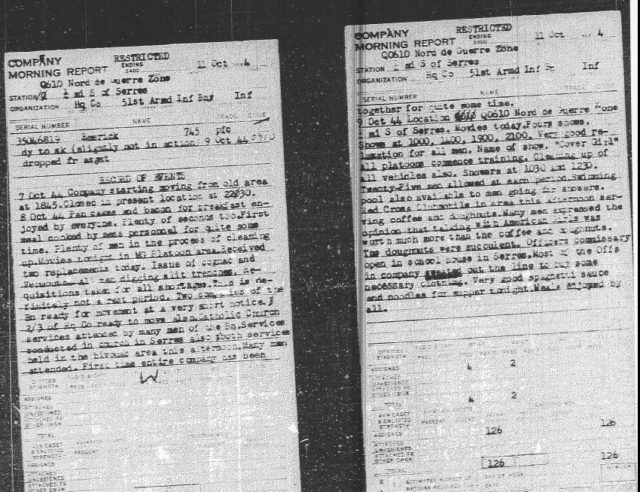 COMPANY
MORNING REPORT
RESTRICTED
ENDING
2400
11 Oct 4
Q0610 Nord de Guerre Zone
STATION mi S of Serres
ORGANIZATION Hq Co 51st Armd Inf Inf
SERIAL NUMBER NAME GRADE
35046819 745 pfc
dy to sk (slightly not in action 9 Oct 44
dropped fr asgmt
RECORD OF EVENTS
7 Oct 44 Company starting moving from old area
at 1845.Closed in present location at 2230.
8 Oct 44 Pancakes and bacon for breakfast en-
joyed by everyone. Plenty of seconds too.First
meal cooked by mess personnel for quite some
time. Plenty of men in the process of cleaning
up.Movies tonight in MG Platoon area.Received
two replacements today. Issue of cognac and
men digging slit trenches. Re-
quisitions taken for all shortages.This is de-
finitely not a rest period. Two of the
Bn ready for movement at a very short notice.
2/3 of Hq Co ready to move also.Catholic Church
services attended by many men of the Bn.Services
conducted in church in Serres also both services
held in the bivouac area this afternoon.Many men
attended. First time entire company has been
W
OFFICER
STRENGTH
ASSIGNED
TOTAL
COMPANY
MORNING REPORT
RESTRICTED
ENDING
2400
11 Oct 4
Q0610 Nord de Guerre Zone
STATION mi S of Serres
ORGANIZATION Hq Co 51st Armd Inf Inf
SERIAL NUMBER NAME
together for quite some time.
9 Oct 44 Location Q0610 Nord de Guerre Zone
mi S of Serres. Movies today.Four shows.
Shows at 1000, 1400, 1900, 2100. Very good re-
laxation for all men. Name of show. "Cover Girl"
All platoons commence training. Cleaning up of
all vehicles also. Showers at 1030 and 1230.
Twenty-Five men allowed at each period.Swimming
pool also available to men going for showers.
Red Cross Clubmobile in area this afternoon ser-
ving coffee and doughnuts.Many men expressed the
opinion that talking with American Girls was
worth much more than the coffee and doughnuts.
The doughnuts were succulent. Officers commissary
open in school house in Serres.Most of the Offs
in company out the line to buy some
necessary clothing. Very good spaghetti sauce
and noodles for supper tonight.Meals enjoyed by
all.
OFFICER
STRENGTH
ASSIGNED 4 2
TOTAL 4 2
126 126
TOTAL 126 126